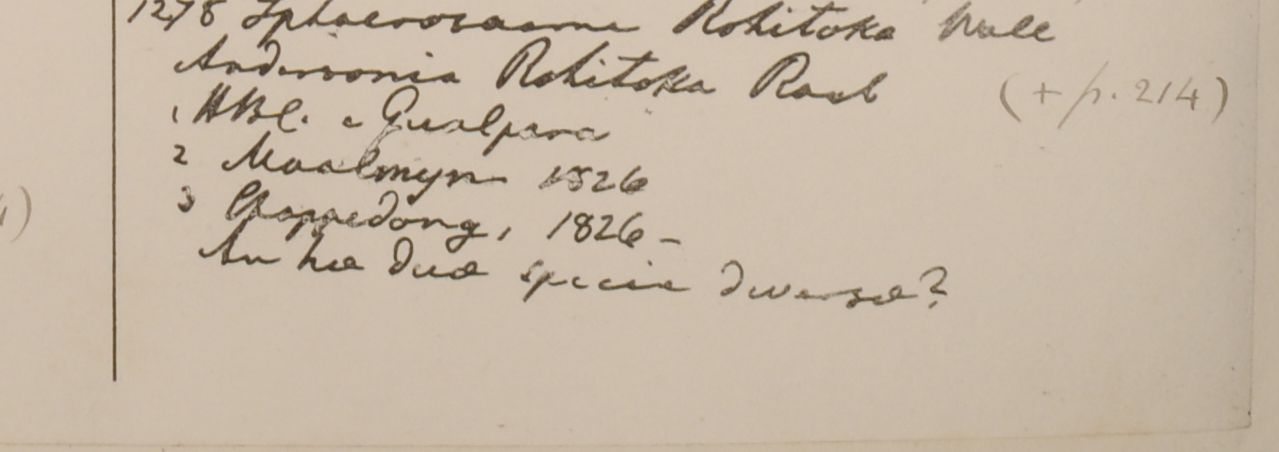 1278 Sphaerosacme Rohitoka Wall
Andersonia Rohitoka Roxb (+ p. 214)
1 HBC. e Gualpara
2 Moalmyn 1826
3 Chappedong, 1826 -
An hæ duæ species diversæ?